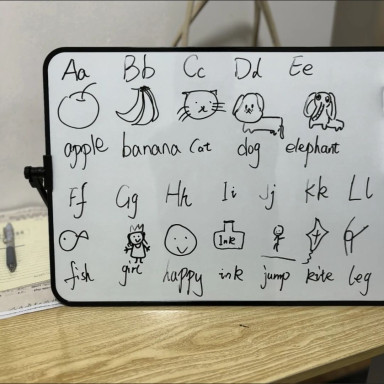 Aa Bb Cc Dd Ee
apple banana Cat dog elephant
Ff Gg Hh Ii Jj Kk Ll
Ink
fish girl happy ink jump kite leg